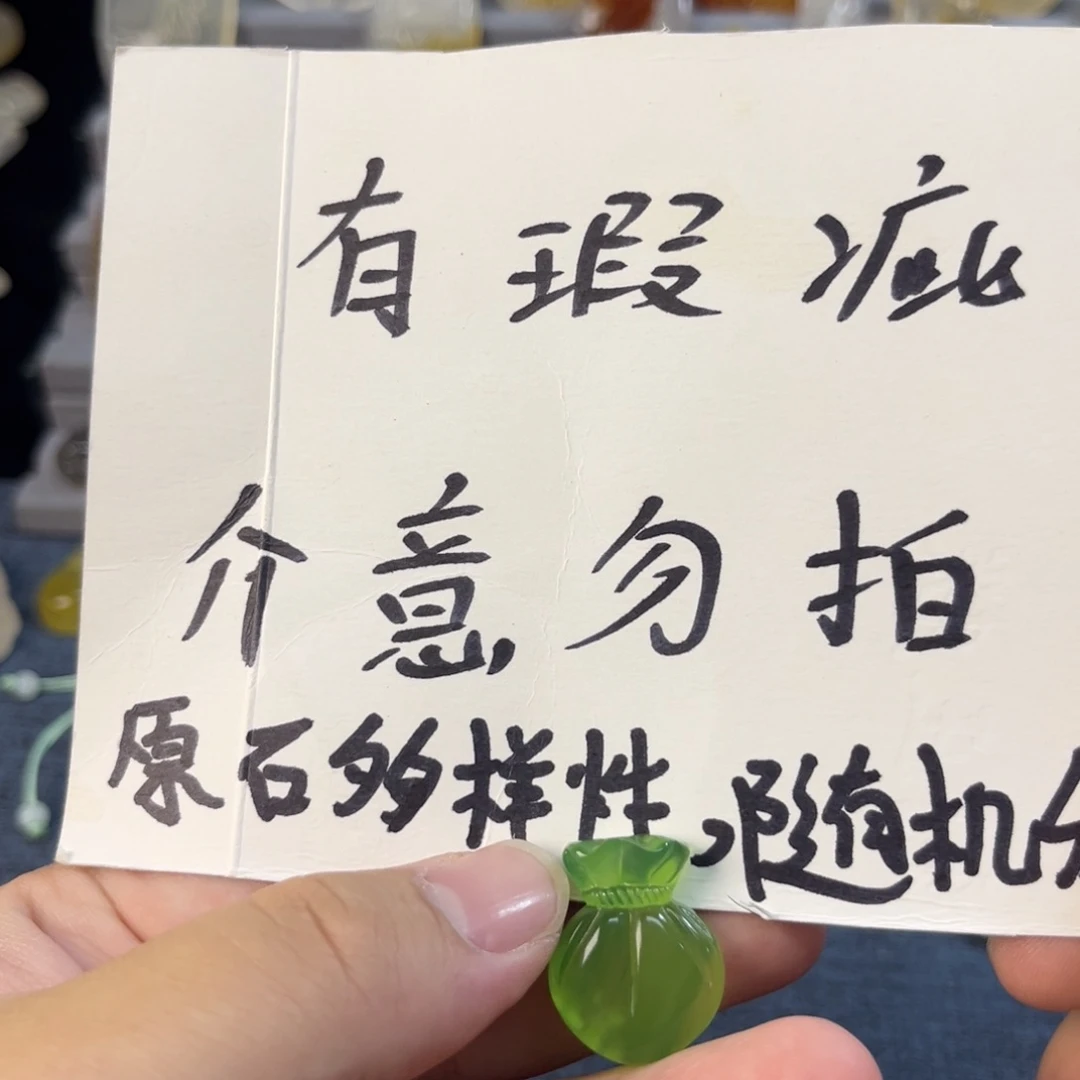 有瑕疵
介意勿拍
原石多样性,随机